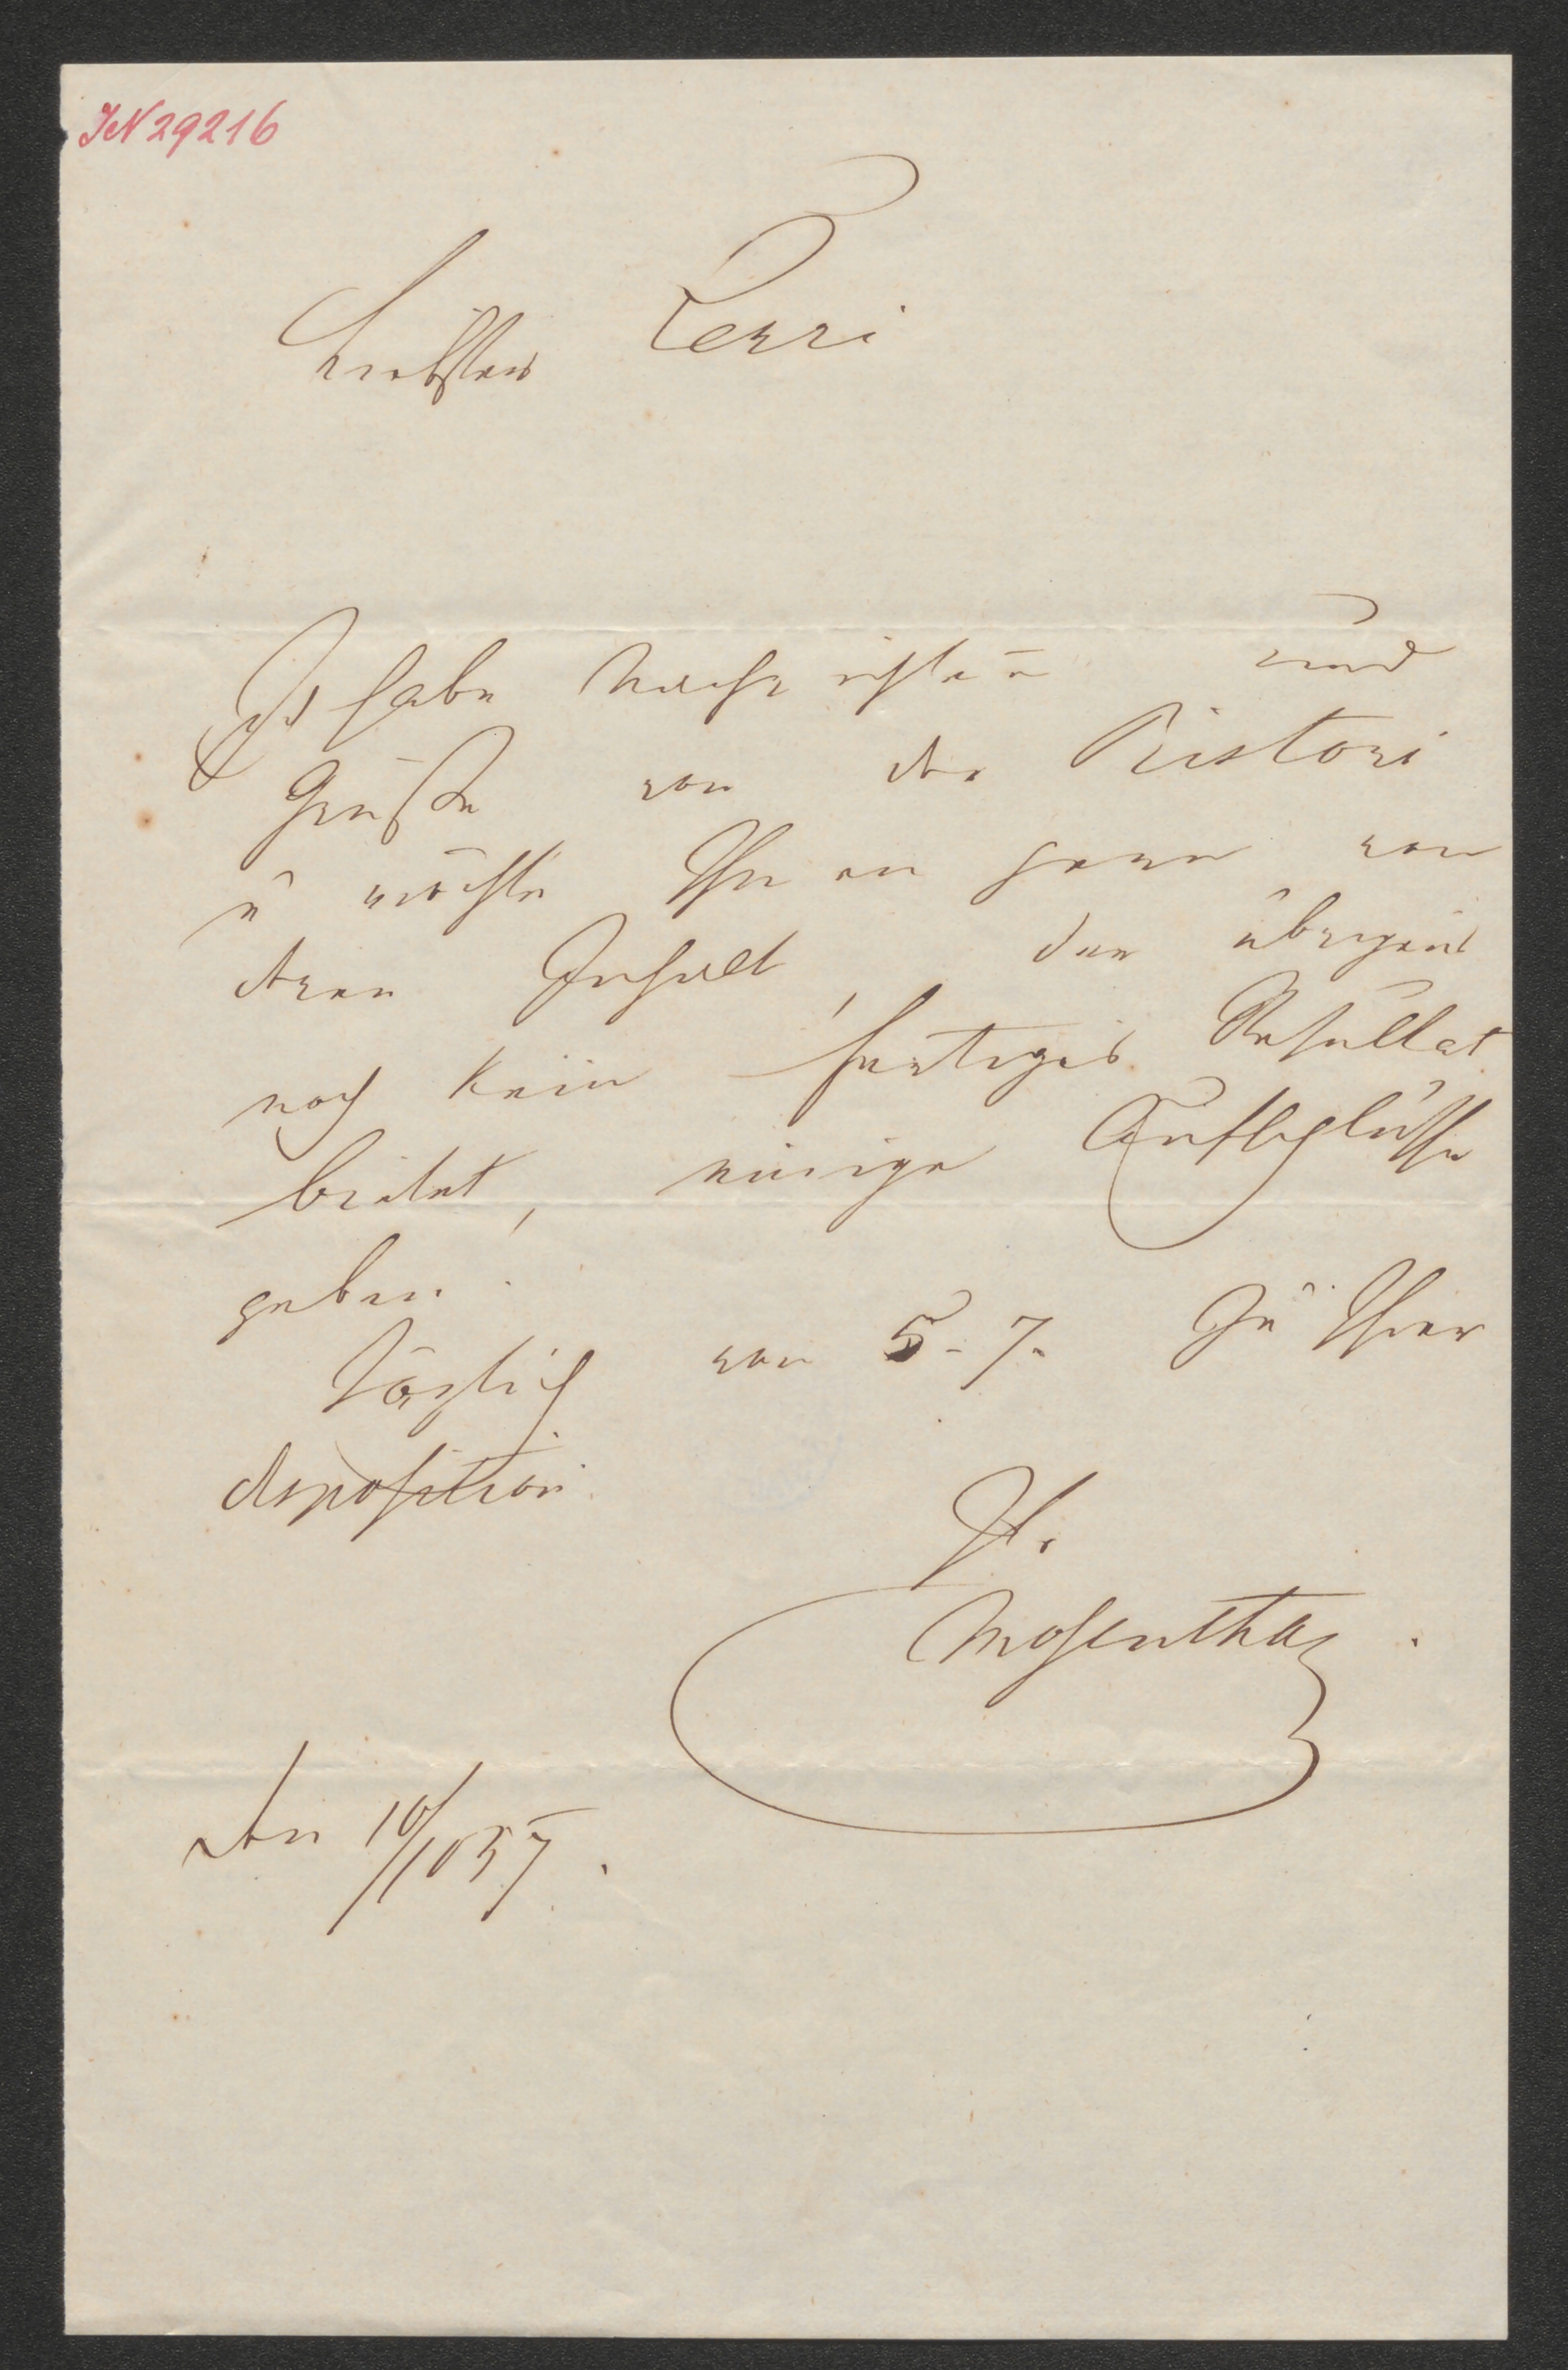 IN 29216
Liebster Cerri
Ich habe Nachrichten und
Grüße von der Ristori
u möchte Ihnen gern von
deren Inhalt, der übrigens
noch kein fertiges Resultat
bietet, einige Aufschlüsse
geben.
Täglich von 5-7. zu Ihrer
disposition.
Ihr
Mosenthal.
den 10/10 57.